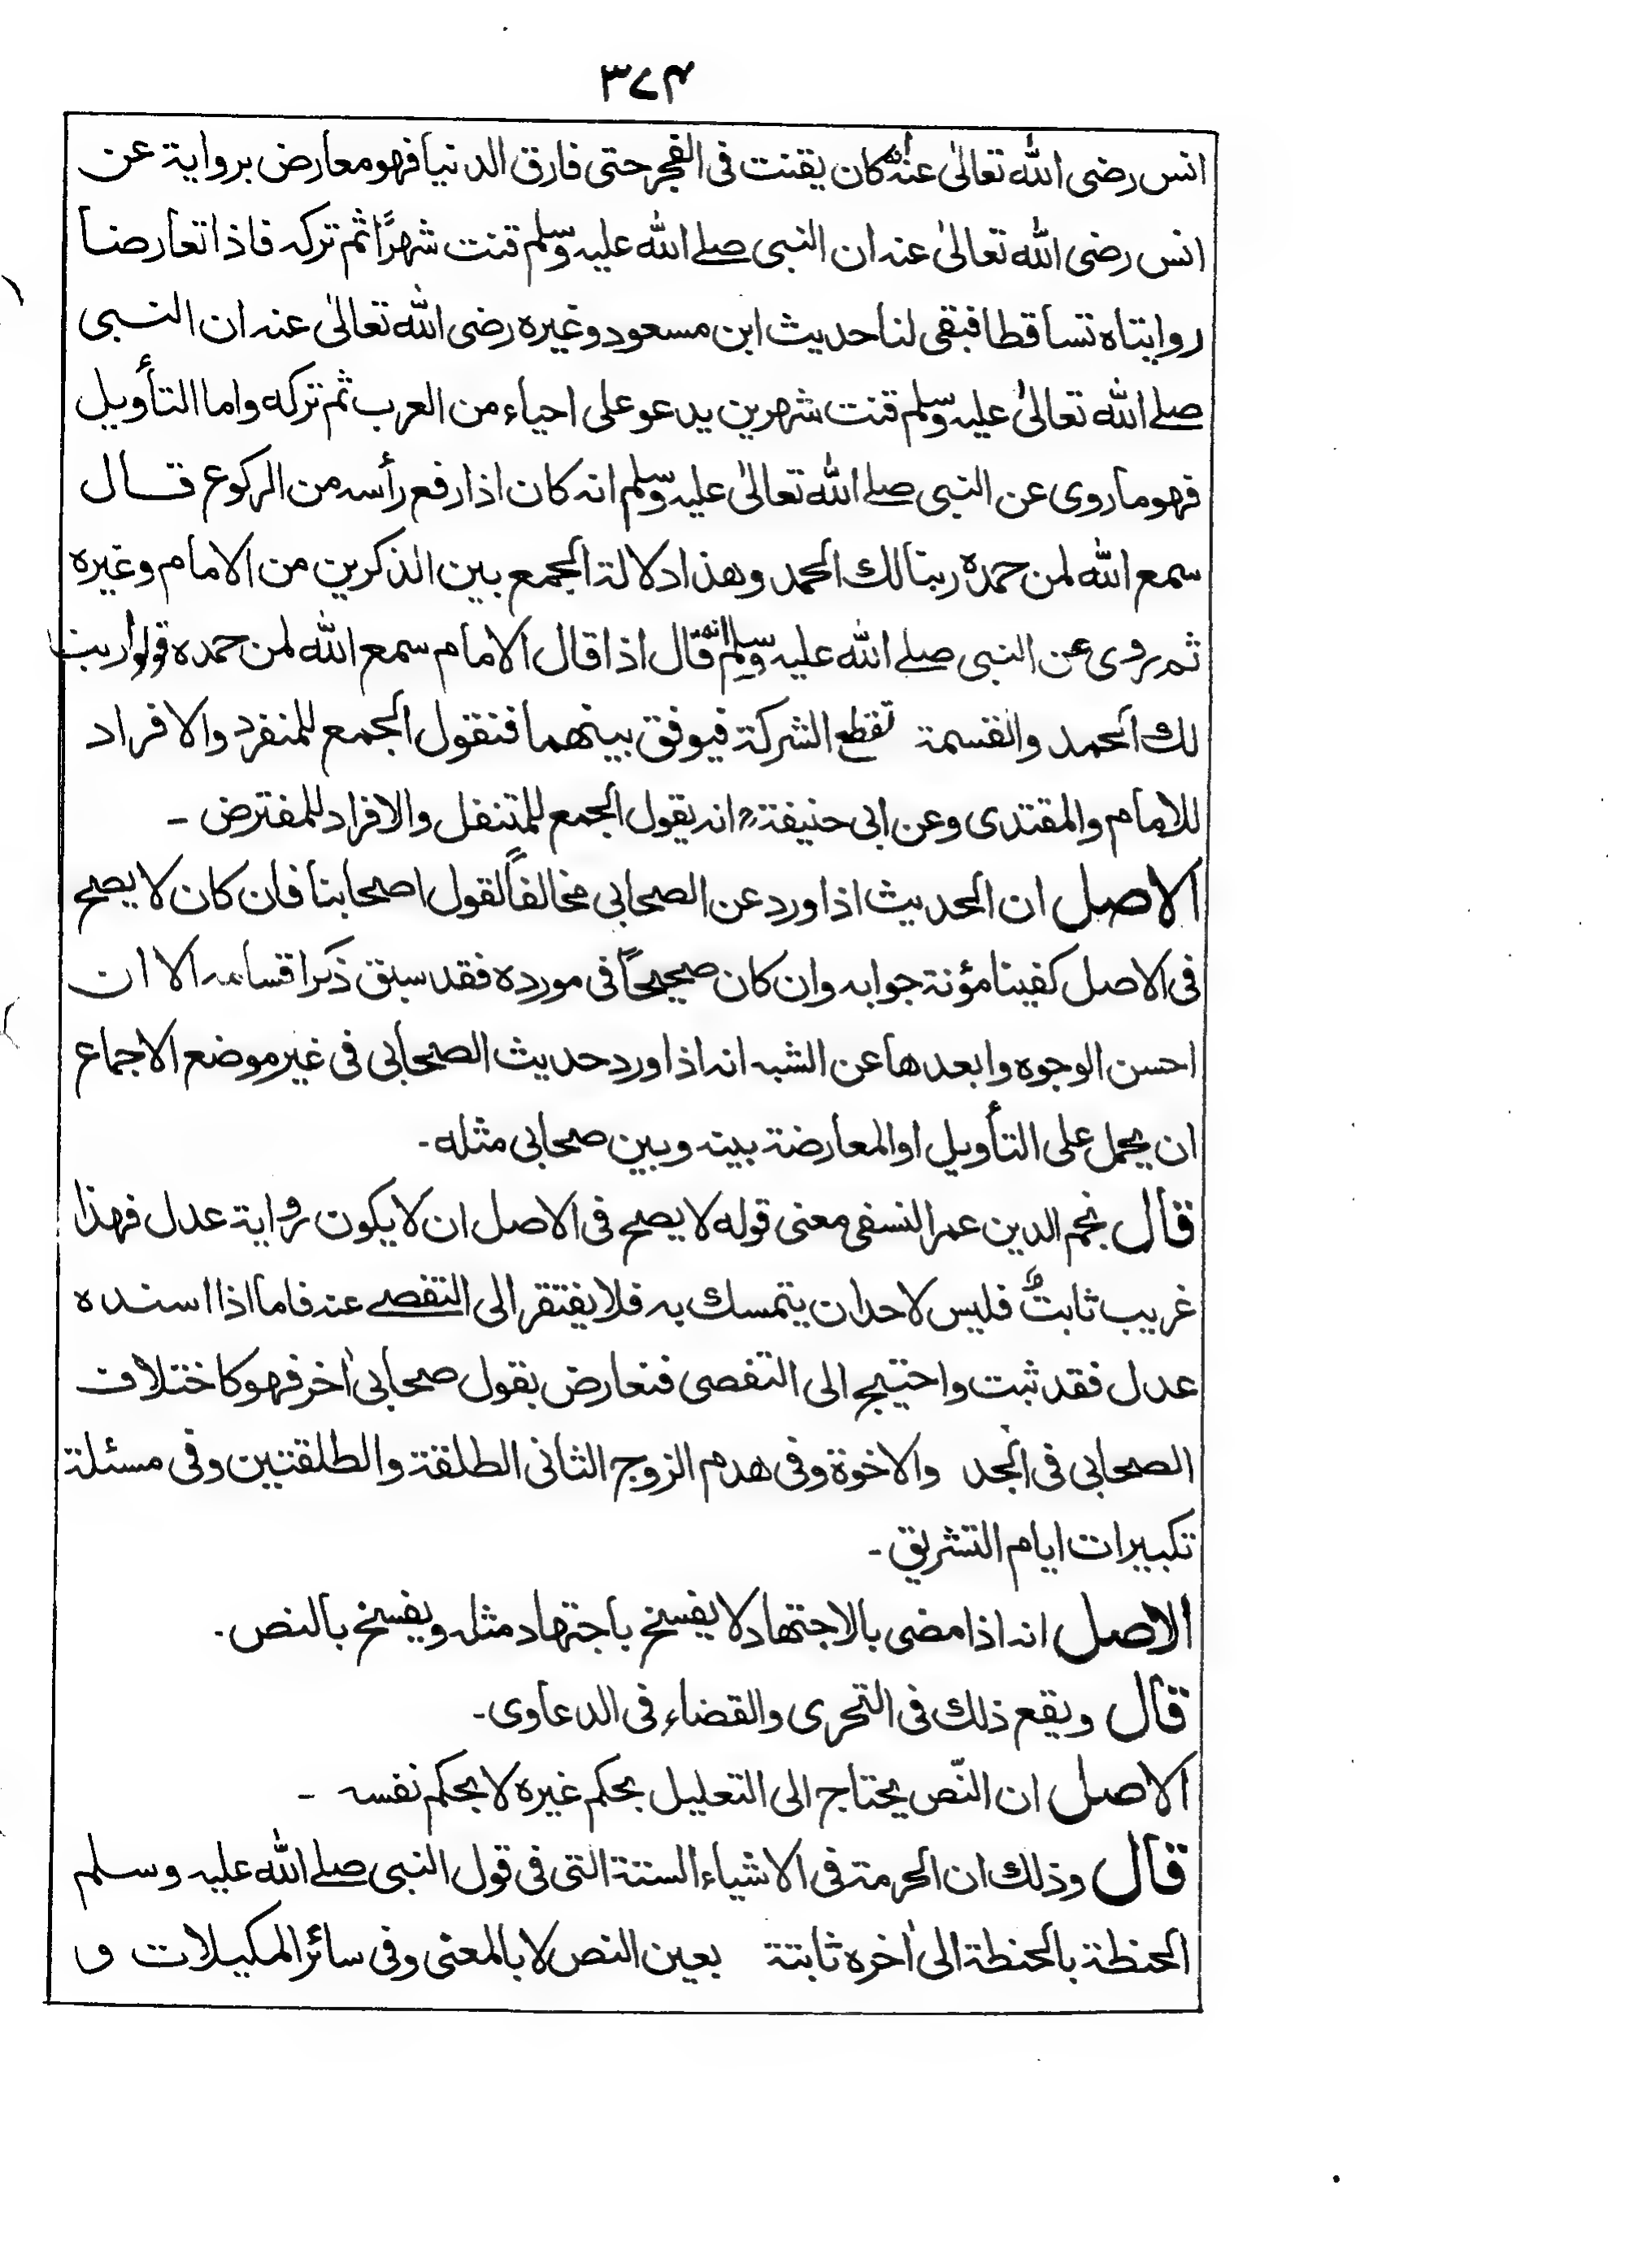 ٣٧۴
انس رضی الله تعالیٰ عنه انه كان يقنت فی الفجر حتی فارق الدنيا فهو معارض برواية عن
انس رضی الله تعالیٰ عنه ان النبی صلے الله عليه وسلم قنت شهرًا ثم تركه فاذا تعارضا
روايتاه تساقطا فبقی لنا حديث ابن مسعود وغيره رضی الله تعالیٰ عنه ان النبی
صلے الله تعالیٰ عليه وسلم قنت شهرين يدعو علی احياء من العرب ثم تركه واما التأويل
فهو ما روی عن النبی صلے الله تعالیٰ عليه وسلم انه كان اذا رفع رأسه من الركوع قال
سمع الله لمن حمده ربنا لك الحمد وهذا دلالة الجمع بين الذكرين من الامام وغيره
ثم روی عن النبی صلے الله عليه وسلم انه قال اذا قال الامام سمع الله لمن حمده قولوا ربنا
لك الحمد والقسمة تقطع الشركة فيوفق بينهما فنقول الجمع للمنفرد والافراد
للامام والمقتدی وعن ابی حنيفة انه يقول الجمع للمتنفل والافراد للمفترض ـ
الاصل ان الحديث اذا ورد عن الصحابی مخالفاً لقول اصحابنا فان كان لا يصح
فی الاصل كفينا مؤنة جوابه وان كان صحيحاً فی مورده فقد سبق ذكر اقسامه الا ان
احسن الوجوه وابعدها عن الشبه انه اذا ورد حديث الصحابی فی غير موضع الاجماع
ان يحمل علی التأويل او المعارضة بينه وبين صحابی مثله ـ
قال نجم الدين عمر النسفی معنی قوله لا يصح فی الاصل ان لا يكون رواية عدل فهذا
غريب ثابت فليس لاحد ان يتمسك به فلا يفتقر الی التفصے عنه فاما اذا اسنده
عدل فقد ثبت واحتيج الی التفصی فتعارض بقول صحابی اٰخر فهو كاختلاف
الصحابی فی الجد والاخوة وفی هدم الزوج الثانی الطلقة والطلقتين وفی مسئلة
تكبيرات ايام التشريق ـ
الاصل انه اذا مضی بالاجتهاد لا يفسخ باجتهاد مثله ويفسخ بالنص ـ
قال ويقع ذلك فی التحری والقضاء فی الدعاوی ـ
الاصل ان النّص يحتاج الی التعليل بحكم غيره لا بحكم نفسه ـ
قال وذلك ان الحرمة فی الاشياء الستة التی فی قول النبی صلے الله عليه وسلم
الحنطة بالحنطة الی اٰخره ثابتة بعين النص لا بالمعنی وفی سائر المكيلات و